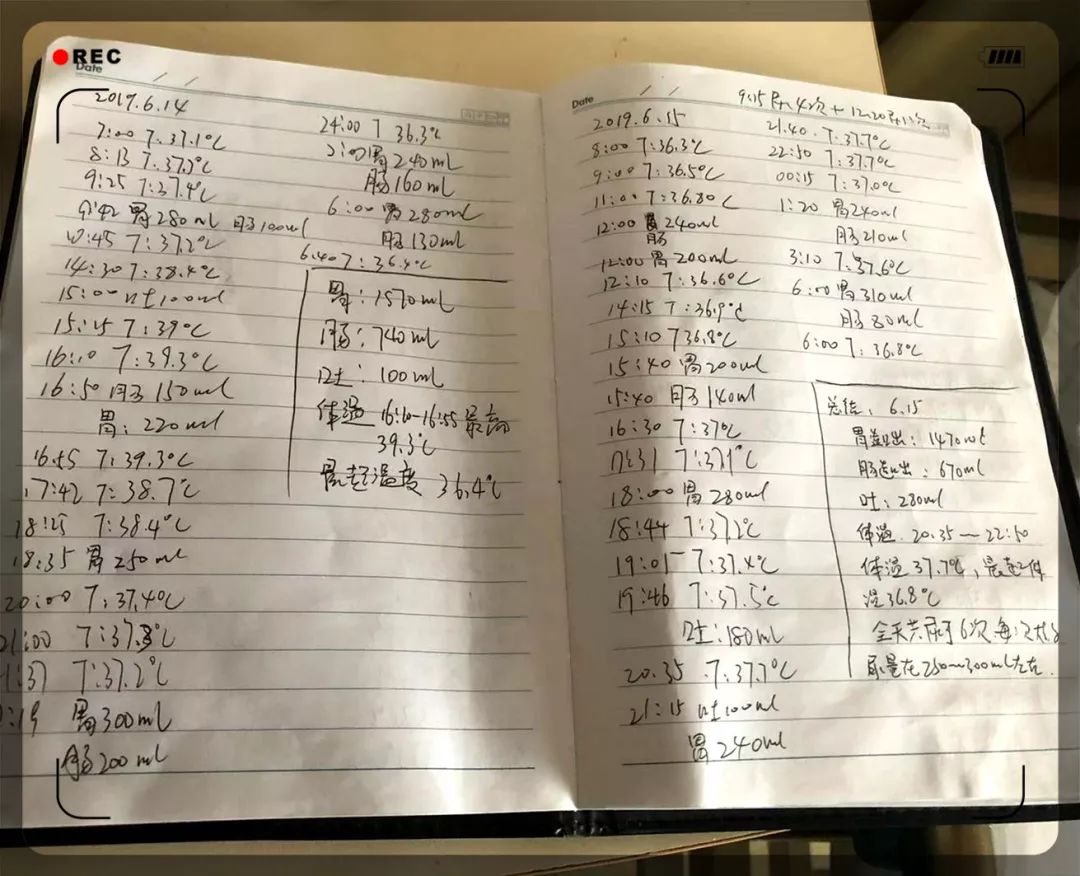 REC
Date
2019.6.14
7:00 T:37.1℃
8:13 T:37.3℃
9:25 T:37.4℃
9:42 胃280ml 肠100ml
10:45 T:37.2℃
14:30 T:38.4℃
15:00 吐100ml
15:25 T:39℃
16:10 T:39.3℃
16:50 肠150ml
胃:220ml
16:55 T:39.3℃
17:42 T:38.7℃
18:25 T:38.4℃
18:35 胃250ml
20:00 T:37.4℃
21:00 T:37.3℃
:37 T:37.2℃
:19 胃300ml
肠200ml
24:00 T 36.3℃
2:00胃240ml
肠160ml
6:00胃280ml
肠130ml
6.40 T:36.4℃
胃:1570ml
肠:740ml
吐:100ml
体温 16:10-16:55最高
39.3℃
最起温度 36.4℃
Date
9:15尿4次+12:20尿1次
2019.6.15
8:00 T:36.3℃
9:00 T:36.5℃
11:00 T:36.8℃
12:00 胃240ml
肠
12:00 胃200ml
12:10 T:36.6℃
14:15 T:36.9℃
15:10 T36.8℃
15:40 胃200ml
15:40 肠140ml
16:30 T:37℃
17:31 T:37.1℃
18:00胃280ml
18:44 T:37.2℃
19:05 T:37.4℃
19:46 T:37.5℃
吐:180ml
20.35 T:37.7℃
21:15 吐100ml
胃240ml
21.40. T:37.7℃
22:50 T:37.7℃
00:15 T:37.0℃
1:20 胃240ml
肠210ml
3:10 T:37.6℃
6:00胃310ml
肠80ml
6:00 T:36.8℃
总结:6.15
胃道出:1470ml
肠道出:670ml
吐:280ml
体温 20.35—22:50
体温37.7℃,最起体
温36.8℃
全天共尿了6次,每次
尿量在250~300ml左右.